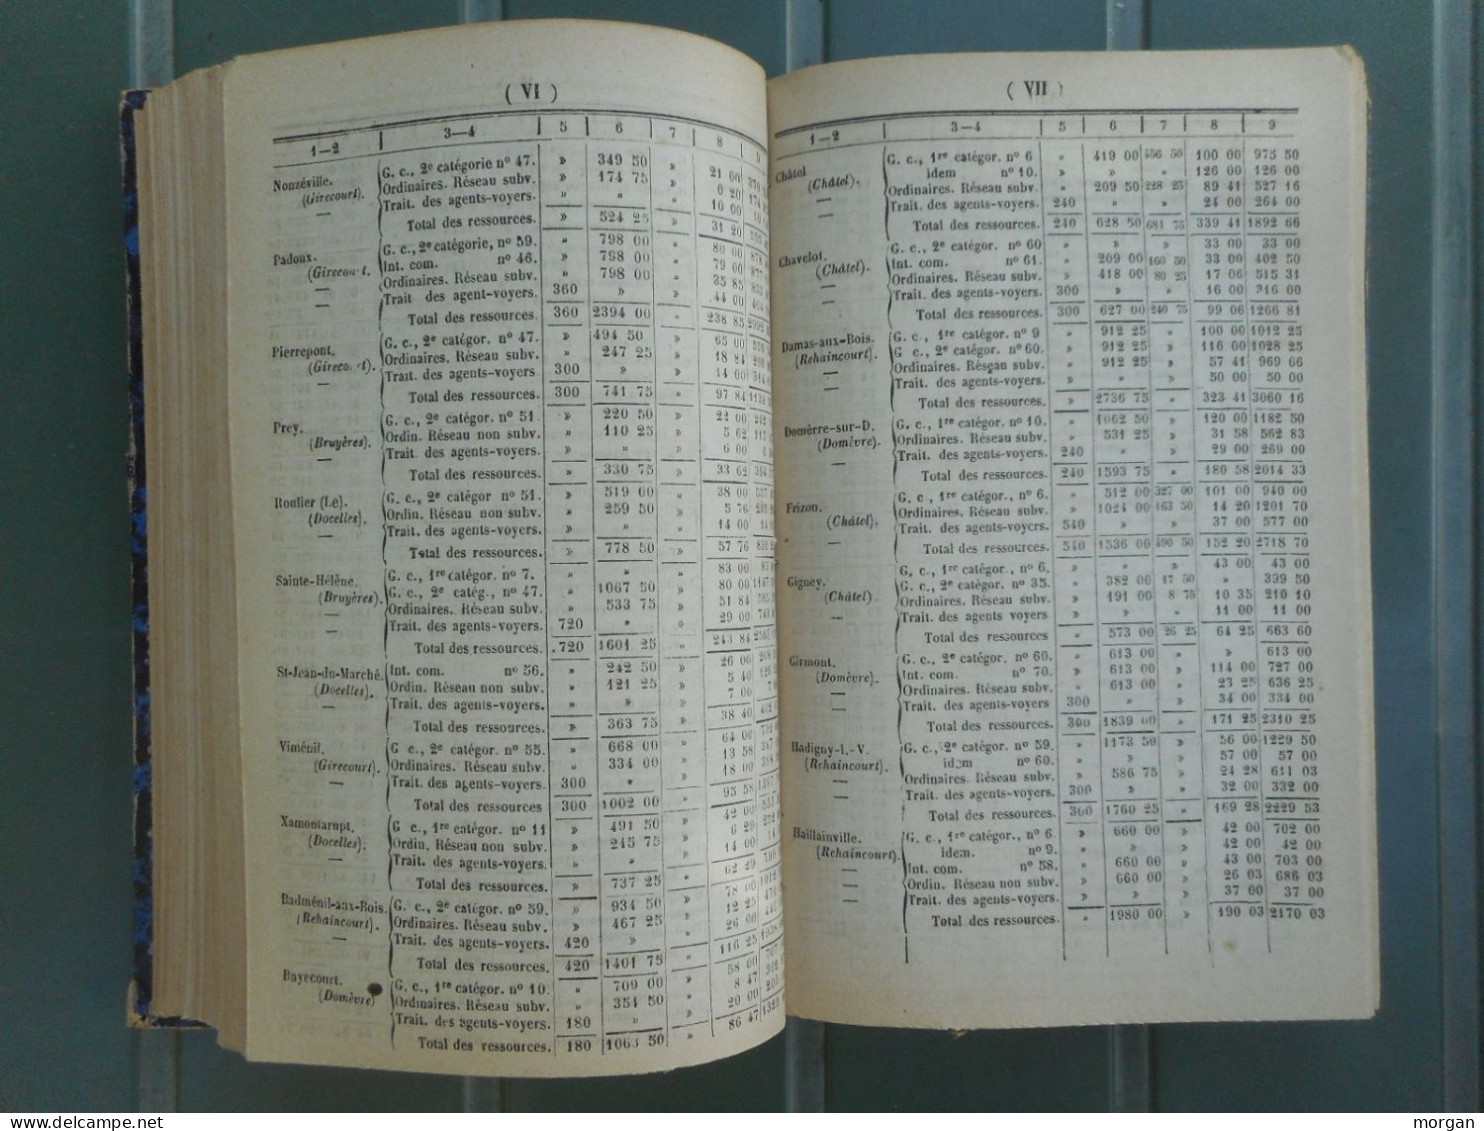 ( VI )
1—2 3—4 5 6 7 8 9
Nonzéville. G. c., 2e catégorie no 47. » 349 50 » 21 00
(Girecourt). Ordinaires. Réseau subv. » 174 75 » 0 20
— Trait. des agents-voyers. » » » 10 00
Total des ressources. » 524 25 » 31 20
Padoux. G. c., 2e catégorie, no 59. » 798 00 » 80 00
(Girecourt. Int. com. no 46. » 798 00 » 79 00
— Ordinaires. Réseau subv. » 798 00 » 35 85
— Trait des agent-voyers. 360 » » 44 00
Total des ressources. 360 2394 00 » 238 85
Pierrepont. G. c., 2e catégor. no 47. » 494 50 » 65 00
(Gireco t). Ordinaires. Réseau subv. » 247 25 » 18 84
— Trait. des agents-voyers 300 » » 14 00
Total des ressources. 300 741 75 » 97 84
Prey. G. c., 2e catégor. no 51. » 220 50 » 22 00
(Bruyères). Ordin. Réseau non subv. » 110 25 » 5 62
— Trait. des agents-voyers. » » » 6 00
Total des ressources. » 330 75 » 33 62
Roulier (Le). G. c., 2e catégor no 51. » 519 00 » 38 00
(Docelles). Ordin. Réseau non subv. » 259 50 » 5 76
— Trait. des agents-voyers. » » » 14 00
Total des ressources. » 778 50 » 57 76
Sainte-Hélène. G. c., 1re catégor. no 7. » » » 83 00
(Bruyères). G. c., 2e catég., no 47. » 1067 50 » 80 00
— Ordinaires. Réseau subv. » 533 75 » 51 84
— Trait. des agents-voyers. 720 » » 29 00
Total des ressources. .720 1601 25 » 243 84
St-Jean-du-Marché. Int. com. no 56. » 242 50 » 26 00
(Docelles). Ordin. Réseau non subv. » 121 25 » 5 40
— Trait. des agents-voyers. » » » 7 00
Total des ressources. » 363 75 » 38 40
Viménil. G. c., 2e catégor. no 55. » 668 00 » 64 00
(Girecourt). Ordinaires. Réseau subv. » 334 00 » 13 58
— Trait. des agents-voyers. 300 » » 18 00
Total des ressources 300 1002 00 » 95 58
Xamontarupt. G c., 1re catégor. no 11 » 491 50 » 42 00
(Docelles). Ordin. Réseau non subv. » 245 75 » 6 29
— Trait. des agents-voyers. » » » 14 00
Total des ressources. » 737 25 » 62 29
Badménil-aux-Bois. G. c., 2e catégor. no 59. » 934 50 » 78 00
(Rehaincourt). Ordinaires. Réseau subv. » 467 25 » 12 25
— Trait. des agents-voyers 420 » » 26 00
Total des ressources. 420 1401 75 » 116 25
Bayecourt. G. c., 1re catégor. no 10. » 709 00 » 58 00
(Domèvre) Ordinaires. Réseau subv. » 354 50 » 8 47
— Trait. des agents-voyers. 180 » » 20 00
Total des ressources. 180 1063 50 » 86 47
( VII )
1—2 3—4 5 6 7 8 9
Châtel G. c., 1re catégor. no 6 » 419 00 456 50 100 00 975 50
(Châtel). idem no 10. » » » 126 00 126 00
— Ordinaires. Réseau subv. » 209 50 228 25 89 41 527 16
— Trait. des agents-voyers. 240 » » 24 00 264 00
Total des ressources. 240 628 50 684 75 339 41 1892 66
Chavelot. G. c., 2e catégor. no 60 » » » 33 00 33 00
(Châtel). Int. com. no 61. » 209 00 160 50 33 00 402 50
— Ordinaires. Réseau subv. » 418 00 80 25 17 06 515 31
— Trait des agents-voyers. 300 » » 16 00 316 00
Total des ressources. 300 627 00 240 75 99 06 1266 81
Damas-aux-Bois. G. c., 1re catégor. no 9 » 912 25 » 100 00 1012 25
(Rehaincourt). G c., 2e catégor. no 60. » 912 25 » 116 00 1028 25
— Ordinaires. Réseau subv. » 912 25 » 57 41 969 66
— Trait. des agents-voyers. » » » 50 00 50 00
Total des ressources. » 2736 75 » 323 41 3060 16
Domèrre-sur-D. G. c., 1re catégor. no 10. » 1062 50 » 120 00 1182 50
(Domèvre). Ordinaires. Réseau subv. » 531 25 » 31 58 562 83
— Trait. des agents-voyers. 240 » » 29 00 269 00
Total des ressources. 240 1593 75 » 180 58 2014 33
Frizon. G. c , 1re catégor., no 6. » 512 00 327 00 101 00 940 00
(Châtel). Ordinaires. Réseau subv. » 1024 00 163 50 14 20 1201 70
— Trait. des agents-voyers. 540 » » 37 00 577 00
Total des ressources. 540 1536 00 490 50 152 20 2718 70
Gigney. G. c., 1re catégor., no 6. » » » 43 00 43 00
(Châtel). G. c., 2e catégor. no 35. » 382 00 17 50 » 399 50
— Ordinaires. Réseau subv. » 191 00 8 75 10 35 210 10
— Trait. des agents voyers » » » 11 00 11 00
Total des ressources » 573 00 26 25 64 25 663 60
Girmont. G. c., 2e catégor. no 60. » 613 00 » » 613 00
(Domèvre). Int. com. no 70. » 613 00 » 114 00 727 00
— Ordinaires. Réseau subv. » 613 00 » 23 25 636 25
— Trait. des agents-voyers 300 » » 34 00 334 00
Total des ressources. 300 1839 00 » 171 25 2310 25
Hadigny-l.-V. G. c., 2e catégor. no 59. » 1173 50 » 56 00 1229 50
(Rehaincourt). idem no 60. » » » 57 00 57 00
— Ordinaires. Réseau subv. » 586 75 » 24 28 611 03
— Trait. des agents-voyers. 300 » » 32 00 332 00
Total des ressources. 300 1760 25 » 169 28 2229 53
Haillainville. G. c., 1re catégor., no 6 » 660 00 » 42 00 702 00
(Rehaincourt). idem. no 9. » » » 42 00 42 00
— Int. com. no 58. » 660 00 » 43 00 703 00
— Ordin. Réseau non subv. » 660 00 » 26 03 686 03
— Trait. des agents-voyers. » » » 37 00 37 00
Total des ressources. » 1980 00 » 190 03 2170 03
delcampe.net
morgan